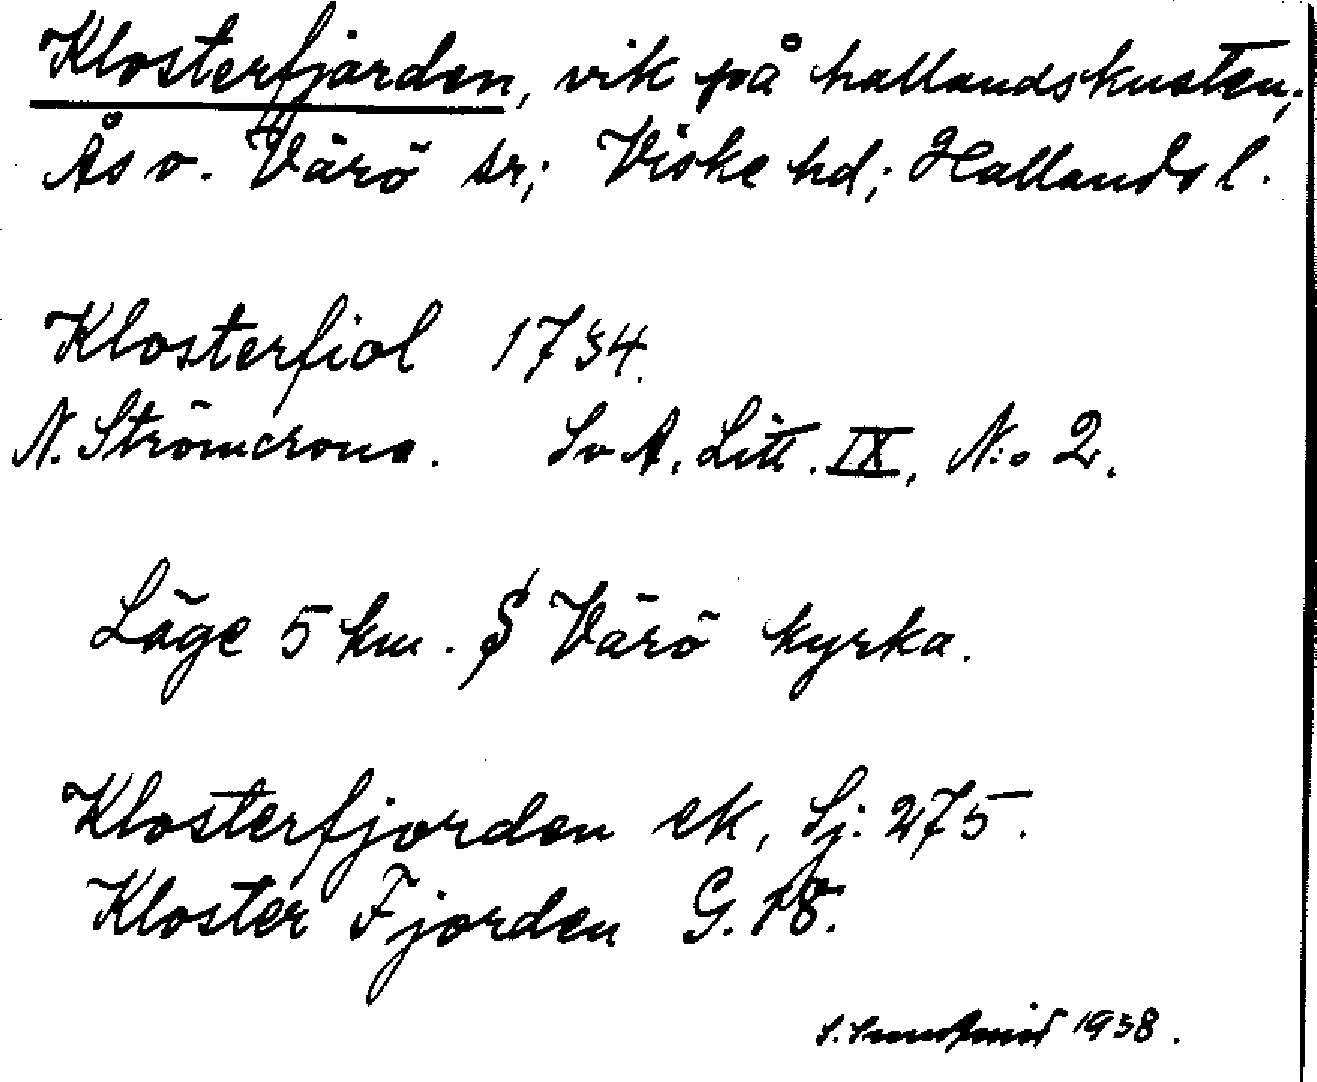 Klosterfjorden, vik på hallandskusten;
Ås o. Värö sr; Viske hd; Hallands l.
Klosterfiol 1734.
N. Strömcrona. SvA. Litt. IX, N:o 2.
Läge 5 km. S Värö kyrka.
Klosterfjorden ek, Sj. 275.
Kloster Fjorden G. 18.
1938.